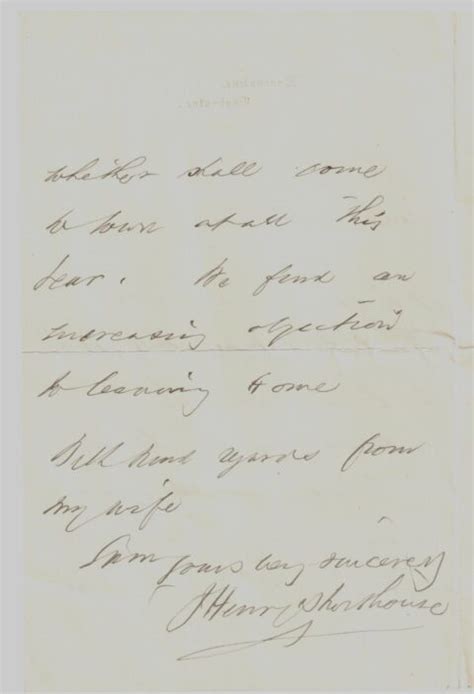 whether shall come
to town at all this
year. We find an
increasing objection
to leaving Home
With kind regards from
my wife
I am yours very sincerely
J Henry Shorthouse